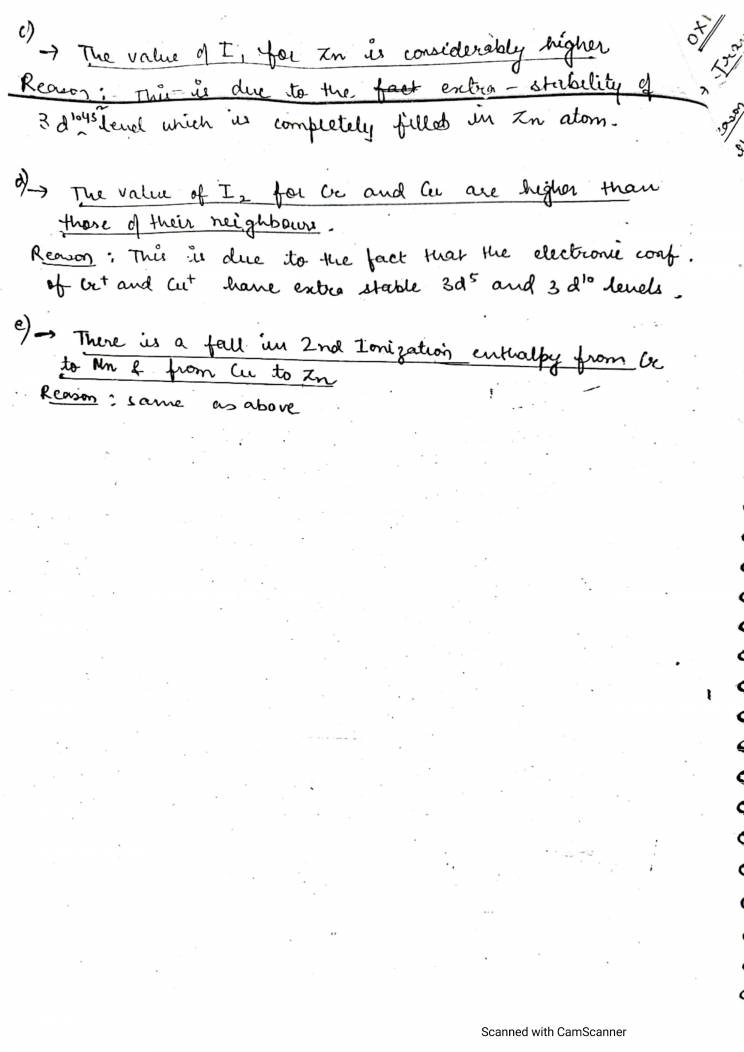 c)
→ The value of I₁ for Zn is considerably higher
Reason : This is due to the fact extra - stability of
3d¹⁰4s² level which is completely filled in Zn atom.
d)→ The value of I₂ for Cr and Cu are higher than
those of their neighbours.
Reason : This is due to the fact that the electronic conf.
of Cr⁺ and Cu⁺ have extra stable 3d⁵ and 3d¹⁰ levels.
e)→ There is a fall in 2nd Ionization enthalpy from Cr
to Mn & from Cu to Zn
Reason : same as above
OXI
Scanned with CamScanner